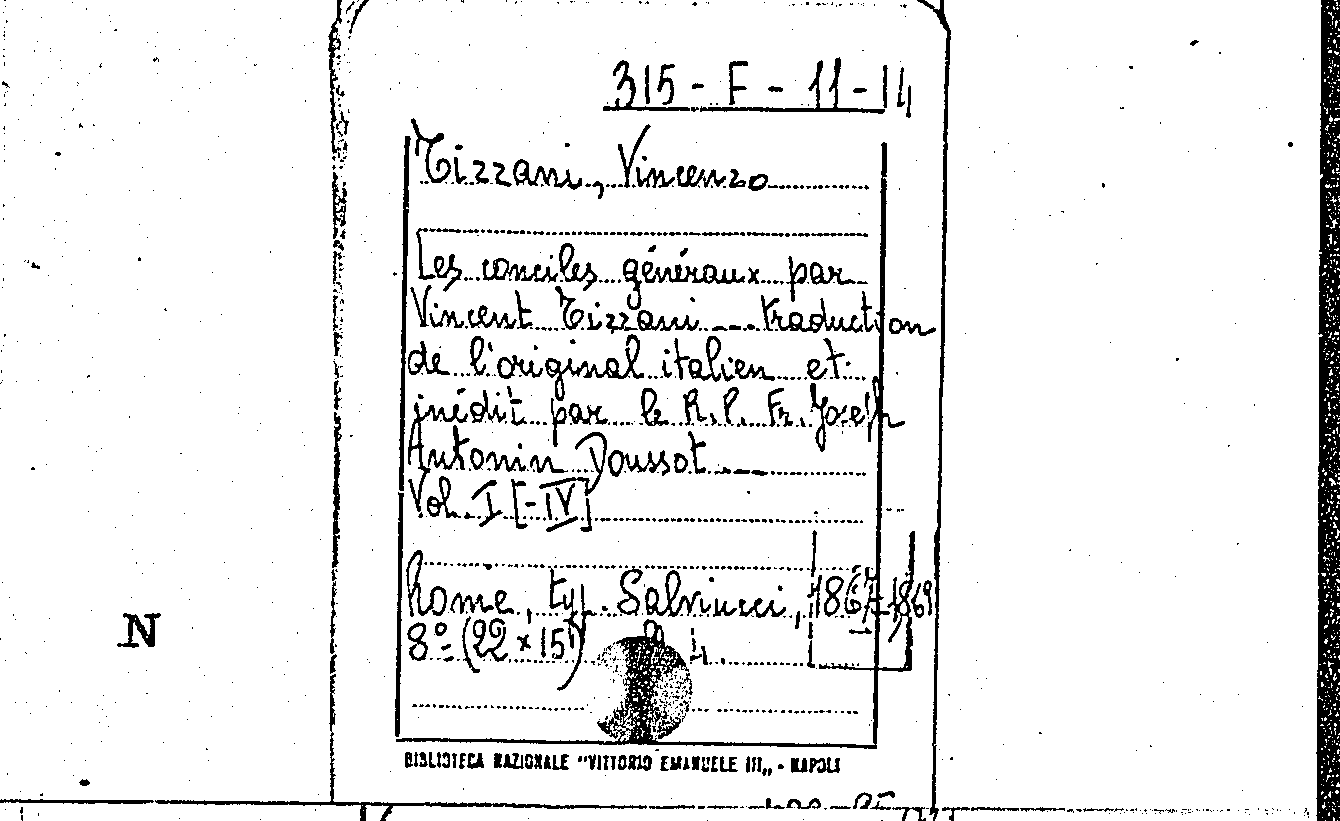 315 - F - 11 - 14
Tizzani, Vincenzo
Les conciles généraux par
Vincent Tizzani ... traduction
de l'original italien et
inédit par le R. P. Fr. Joseph
Antonin Doussot ...
Vol. I [-IV]
Rome, typ. Salviucci, 1867-1869
8º (22 x 15) 4.
N
BIBLIOTECA NAZIONALE "VITTORIO EMANUELE III„ - NAPOLI